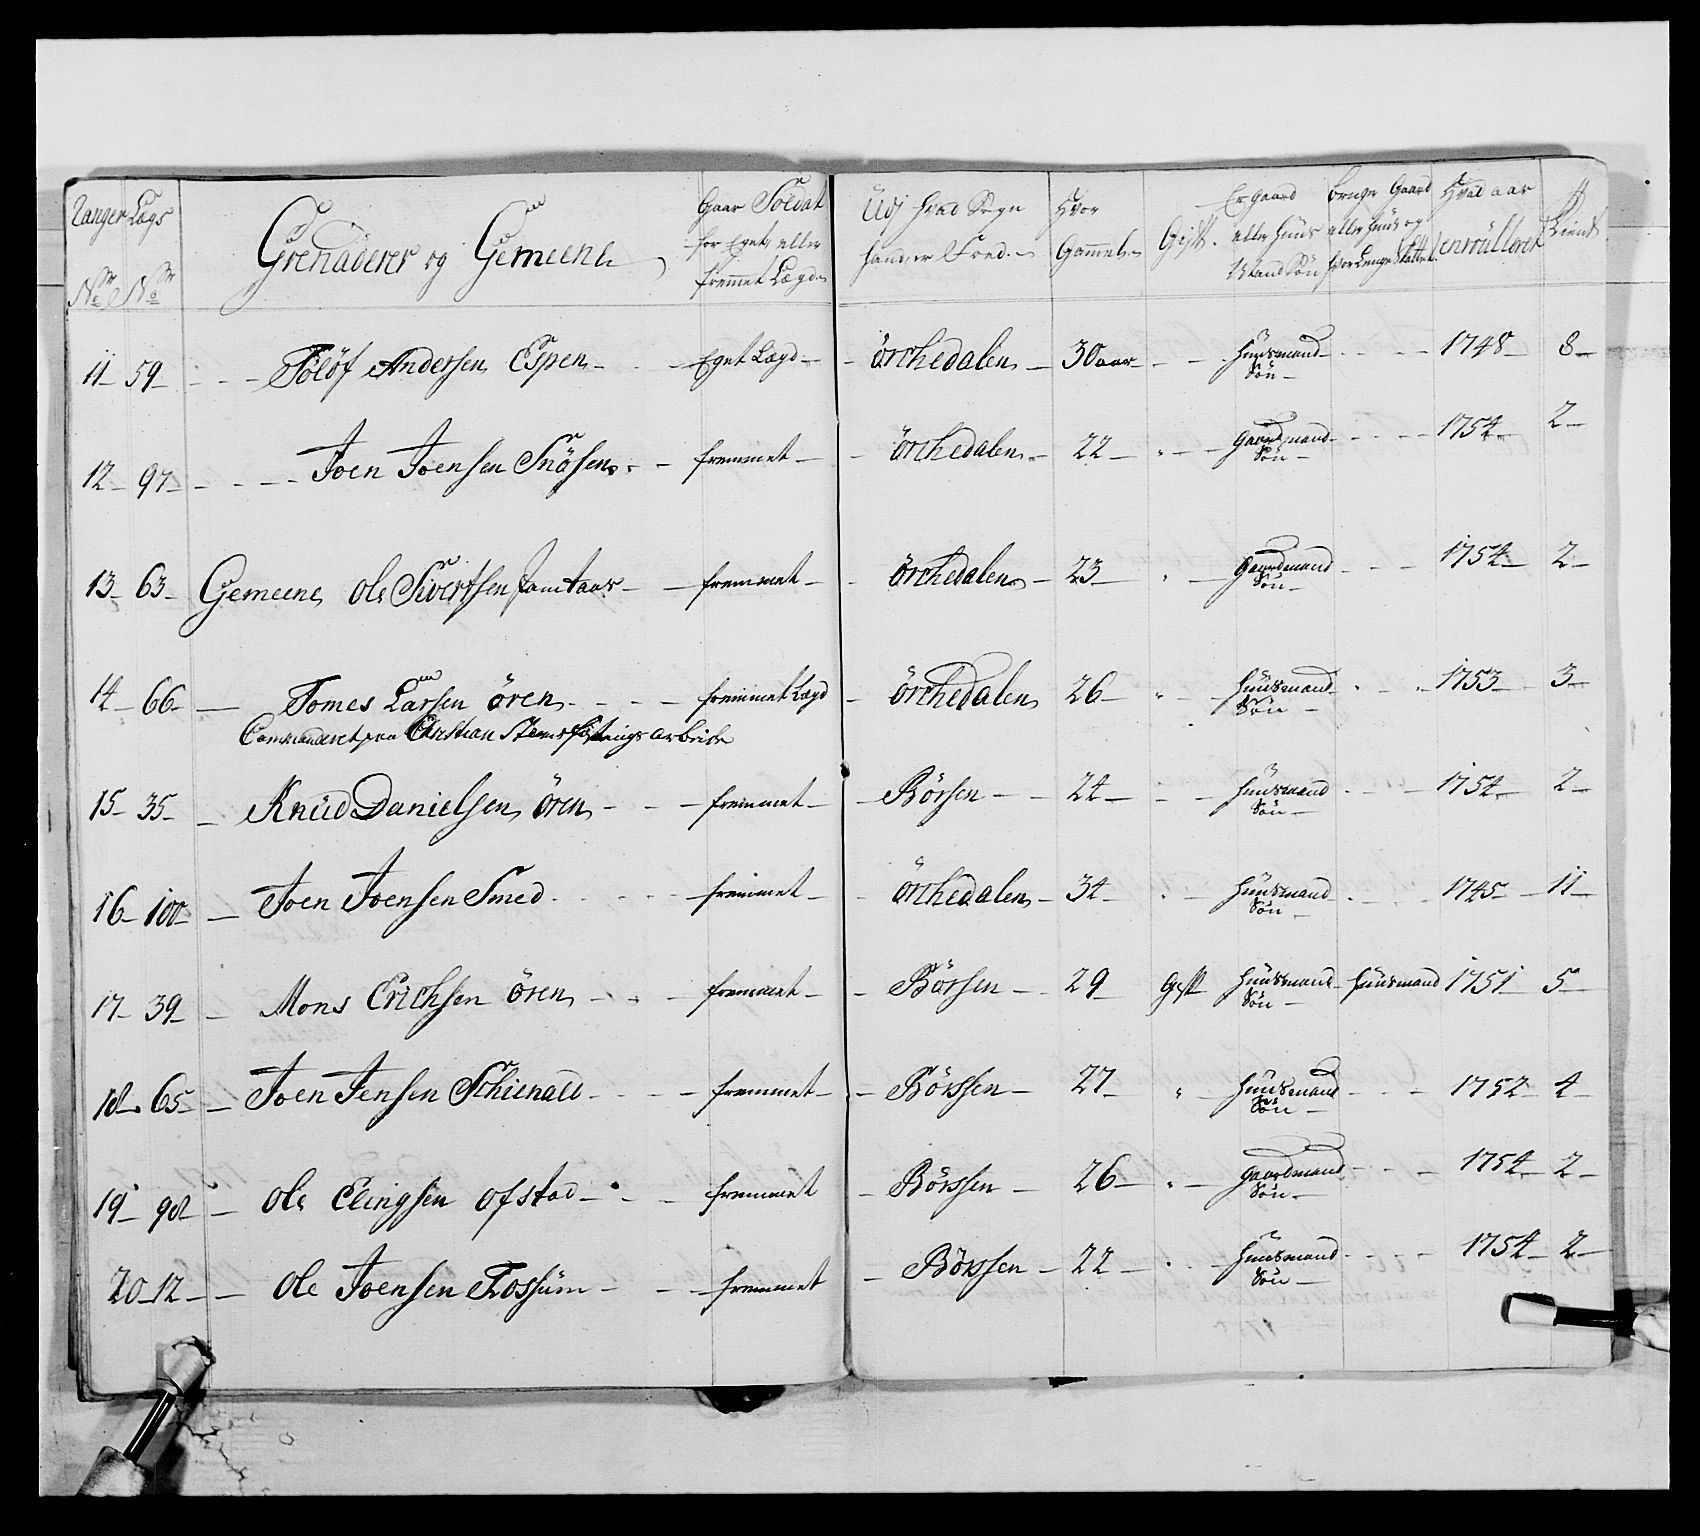 Ranger Lægs
No No
Grenaderer og Gemeene
Gaar Soldat
for Eget eller
fremmet Lægd
Udj hvad Sogn
hand er Fød
Hvor
Gammel
Gift
Er gaard
eller huus
Mand Søn
bruger Gaard
eller huus og
hvor Lenge
Hvad aar
enroulleret
tient
11 59 Tolöf Andersen Espen Eget Lægd örchedalen 30 aar huusmand Sön 1748 8
12 97 Joen Joensen Snösen fremmet örchedalen 22 gaardmand Sön 1754 2
13 63 Gemeene Ole Sivertsen fremmet örchedalen 23 gaardmand Sön 1754 2
14 66 Tomes Larsen ören fremmet Lægd örchedalen 26 huusmand Sön 1753 3
Commanderet paa Christian arbeide
15 35 Knud Danielsen ören fremmet Börsen 24 huusmand Sön 1754 2
16 100 Joen Joensen Smed fremmet örchedalen 34 huusmand Sön 1745 11
17 39 Mons Erichsen ören fremmet Börsen 29 gift huusmand Sön huusmand 1751 5
18 65 Joen Jensen Schienald fremmet Börssen 27 huusmand Sön 1752 4
19 98 Ole Elingsen ofstad fremmet Börssen 26 gaardmand Sön 1754 2
20 12 Ole Joensen Fossum fremmet Börssen 22 huusmand Sön 1754 2